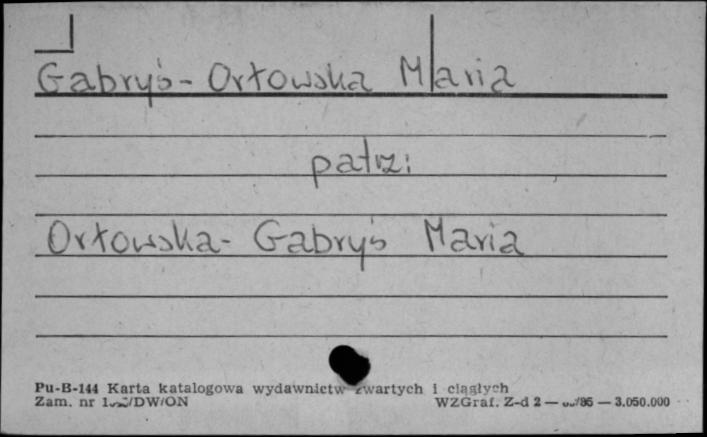 Gabryś-Orłowska Maria
patrz:
Orłowska-Gabryś Maria
Pu-B-144 Karta katalogowa wydawnictw zwartych i ciągłych
Zam. nr /DW/ON WZGraf. Z-d 2 — /86 — 3.050.000